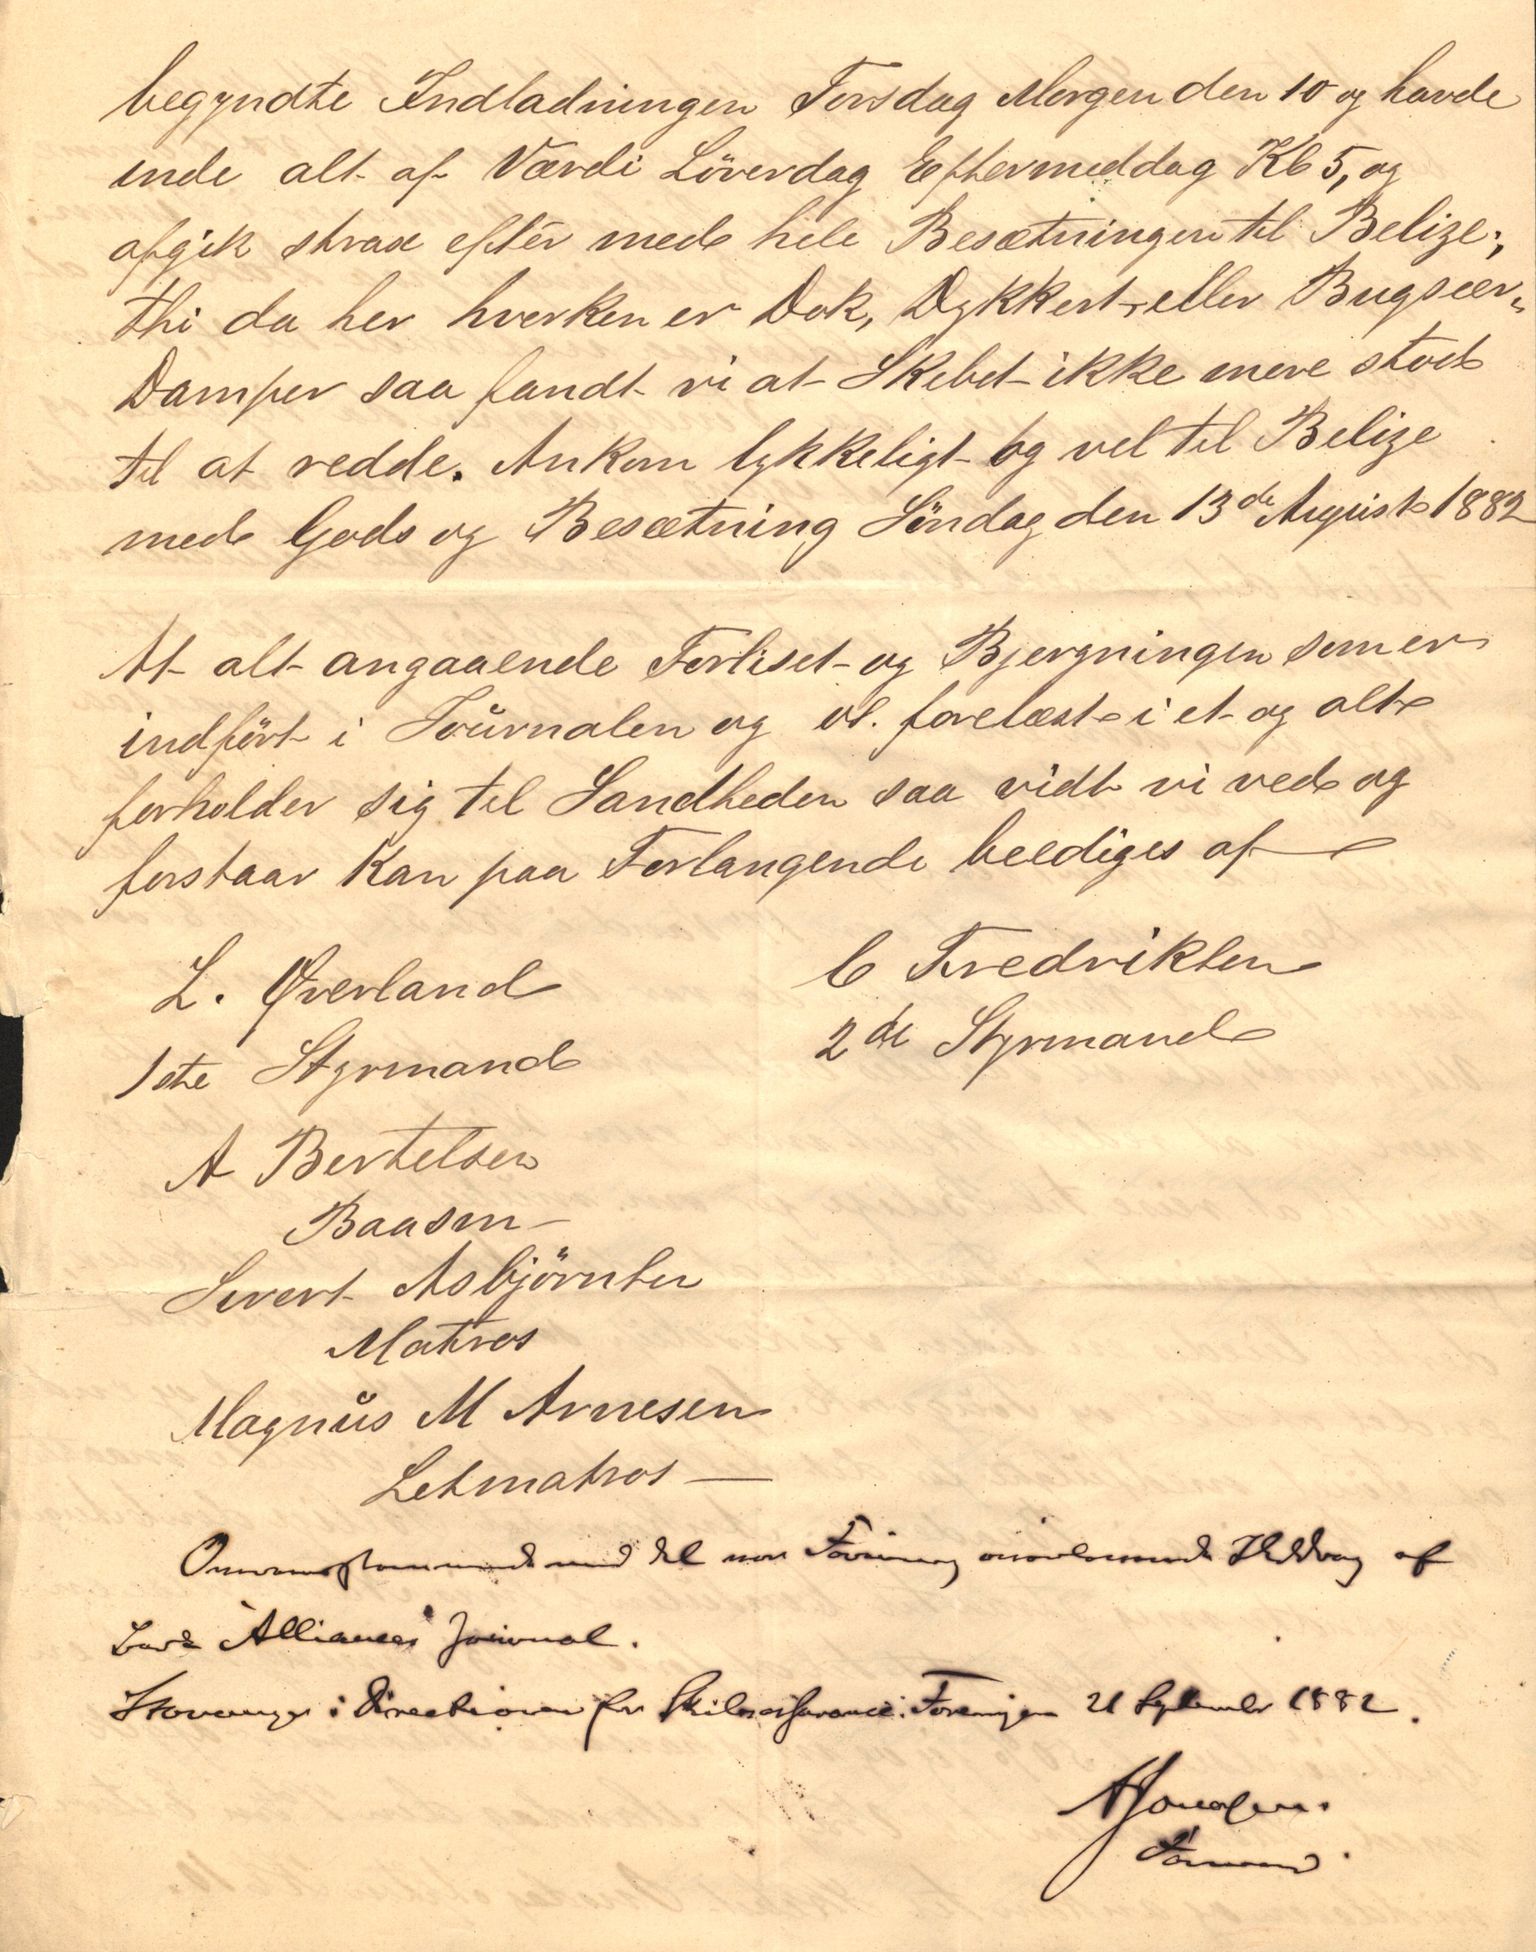 begyndte Indladningen Torsdag Morgen den 10 og havde
inde alt af Værdi Löverdag Eftermeddag Kl 5, og
afgik strax efter med hele Besætningen til Belize;
thi da her hverken er Dok, Dykkert, eller Bugseer-
Damper saa fandt vi at Skebet ikke mere stod
til at redde. Ankom lykkeligt og vel til Belize
med Gods og Besætning Söndag den 13de August 1882
At alt angaaende Forliset og Bjergningen som er
indfört i Journalen og forelæst i et og alt
forholder sig til Sandheden saa vidt vi ved og
forstaar kan paa Forlangende beediges af
L. Øverland
C Fredriksen
1ste Styrmand
2de Styrmand
A Bertelsen
Baasm
Sivert Asbjörnsen
Matros
Magnus M Arnesen
Letmatros
Overensstemmende med det Uddrag af
Bark "Alliances" Journal.
Stavanger i Directionen for Skibsassurance Foreningen 21 September 1882.
Formand.